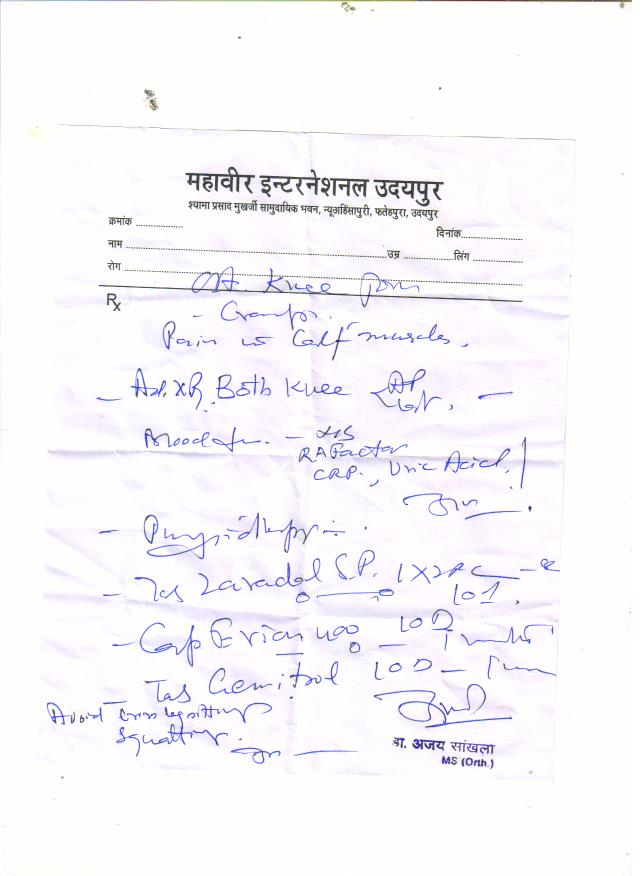 महावीर इन्टरनेशनल उदयपुर
श्यामा प्रसाद मुखर्जी सामुदायिक भवन, न्यूअहिंसापुरी, फतेहपुरा, उदयपुर
क्रमांक ................
दिनांक......................
नाम ..................................................उम्र ..................लिंग ..................
रोग ..................................................
Knee Pain
Rx
- Cramps.
Pain in Calf muscles,
- Adv. XR Both Knee AP
Lat. -
Blood for -
RA Factor
CRP., Uric Acid,
- Physiotherapy
- Tab S.P. 1x2
101.
- Cap 400 1OD
- Tab 1OD -
Avoid cross leg sitting
Squatting.
डा. अजय सांखला
MS (Orth.)